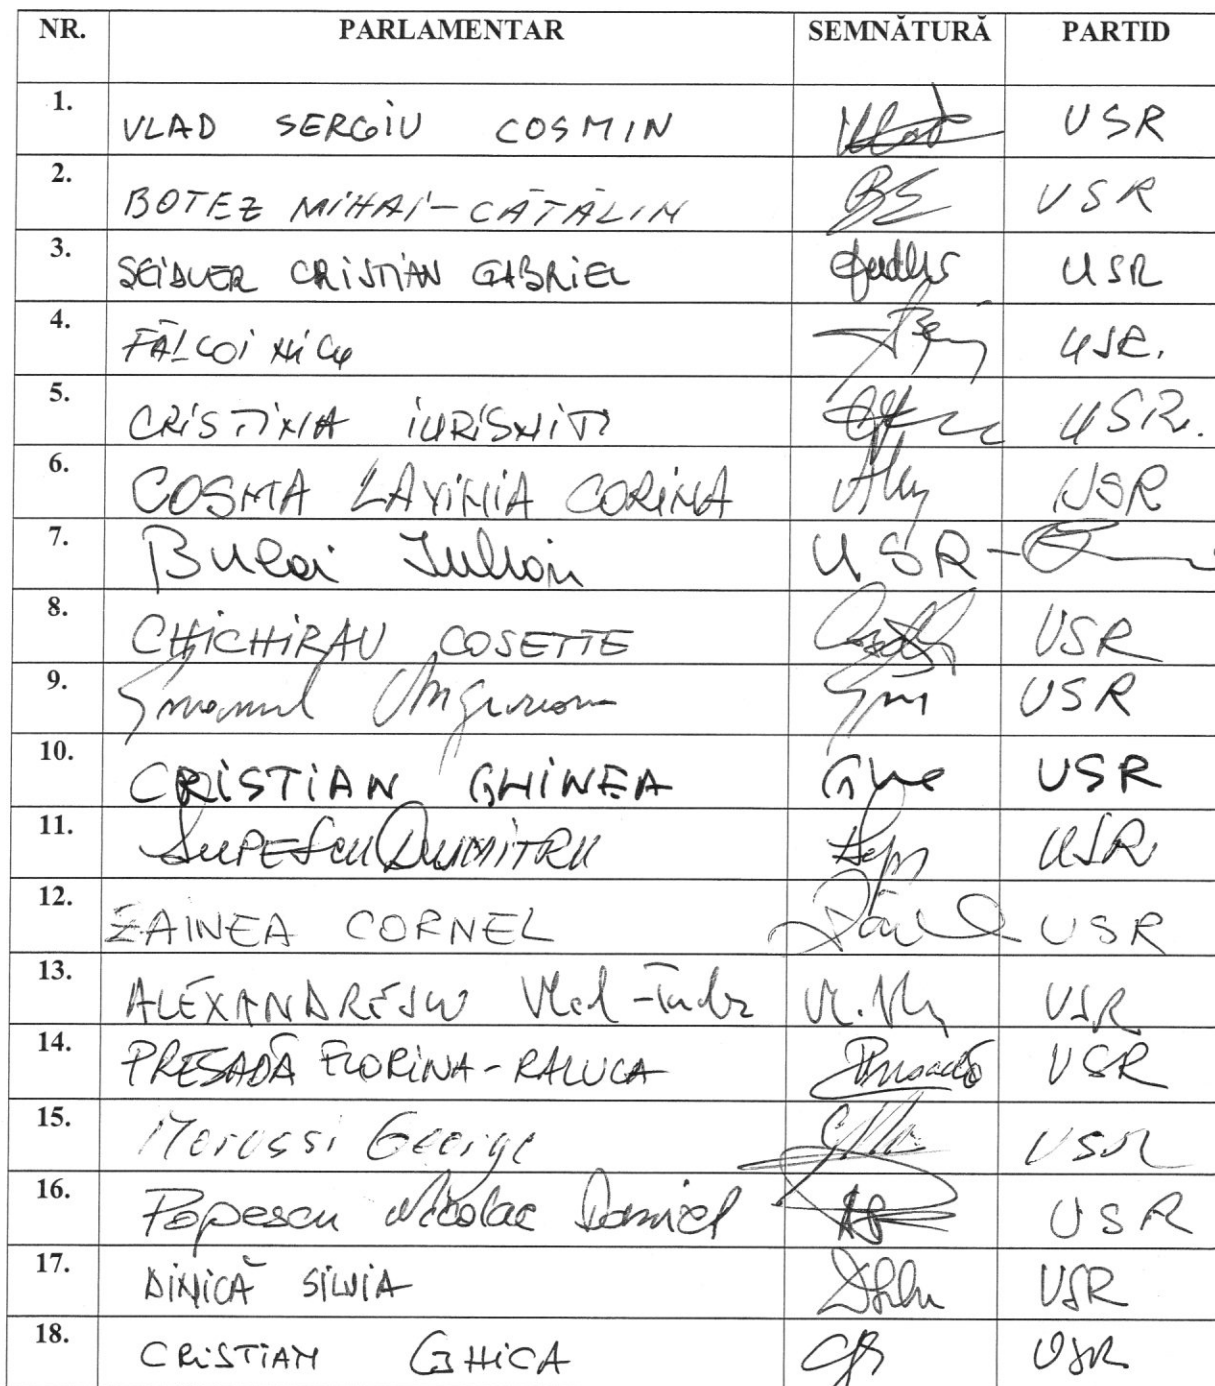 NR. PARLAMENTAR SEMNĂTURĂ PARTID
1. VLAD SERGIU COSMIN Vlad USR
2. BOTEZ MIHAI-CĂTĂLIN USR
3. SEIDLER CRISTIAN GABRIEL USR
4. FĂLCOI NICU USR.
5. CRISTINA IURIȘNIȚI USR.
6. COSMA LAVINIA CORINA USR
7. Bulai Iulian USR-
8. CHICHIRĂU COSETTE USR
9. Emanuel Ungureanu USR
10. CRISTIAN GHINEA USR
11. LUPESCU DUMITRU USR
12. ZAINEA CORNEL USR
13. ALEXANDRESCU Vlad-Tudor USR
14. PRESADĂ FLORINA-RALUCA Presadă USR
15. Marussi George USR
16. Popescu Nicolae Daniel USR
17. DINICĂ SILVIA USR
18. CRISTIAN GHICA USR